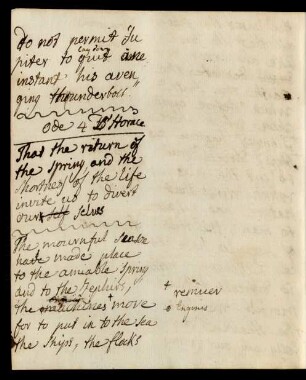 do not permit Ju
piter to quit one
instant his aven
ging thounderbolt"
Ode 4 Horace
That the return of
the spring and the
shortness of the life
invite us to divert
our selves
The mournful season
have made place
to the amiable spring
and to the
the machines + move
for to put in to the sea
the ships, the flocks
+ remuer